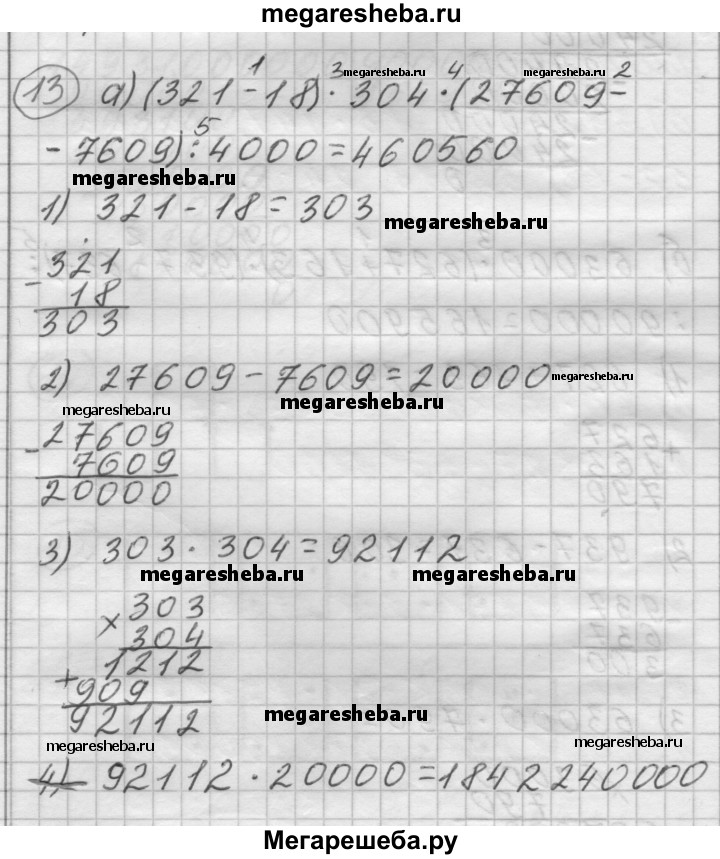 megaresheba.ru
13 а) (321 - 18) · 304 · (27609 -
1 3 4 2
megaresheba.ru megaresheba.ru
- 7609) : 4000 = 460560
5
megaresheba.ru
1) 321 - 18 = 303
megaresheba.ru
- 321
18
303
2) 27609 - 7609 = 20000
megaresheba.ru
megaresheba.ru megaresheba.ru
- 27609
7609
20000
3) 303 · 304 = 92112
megaresheba.ru megaresheba.ru
× 303
304
1212
+ 909
92112
megaresheba.ru
megaresheba.ru megaresheba.ru
4) 92112 · 20000 = 1842240000
Мегарешеба.ру